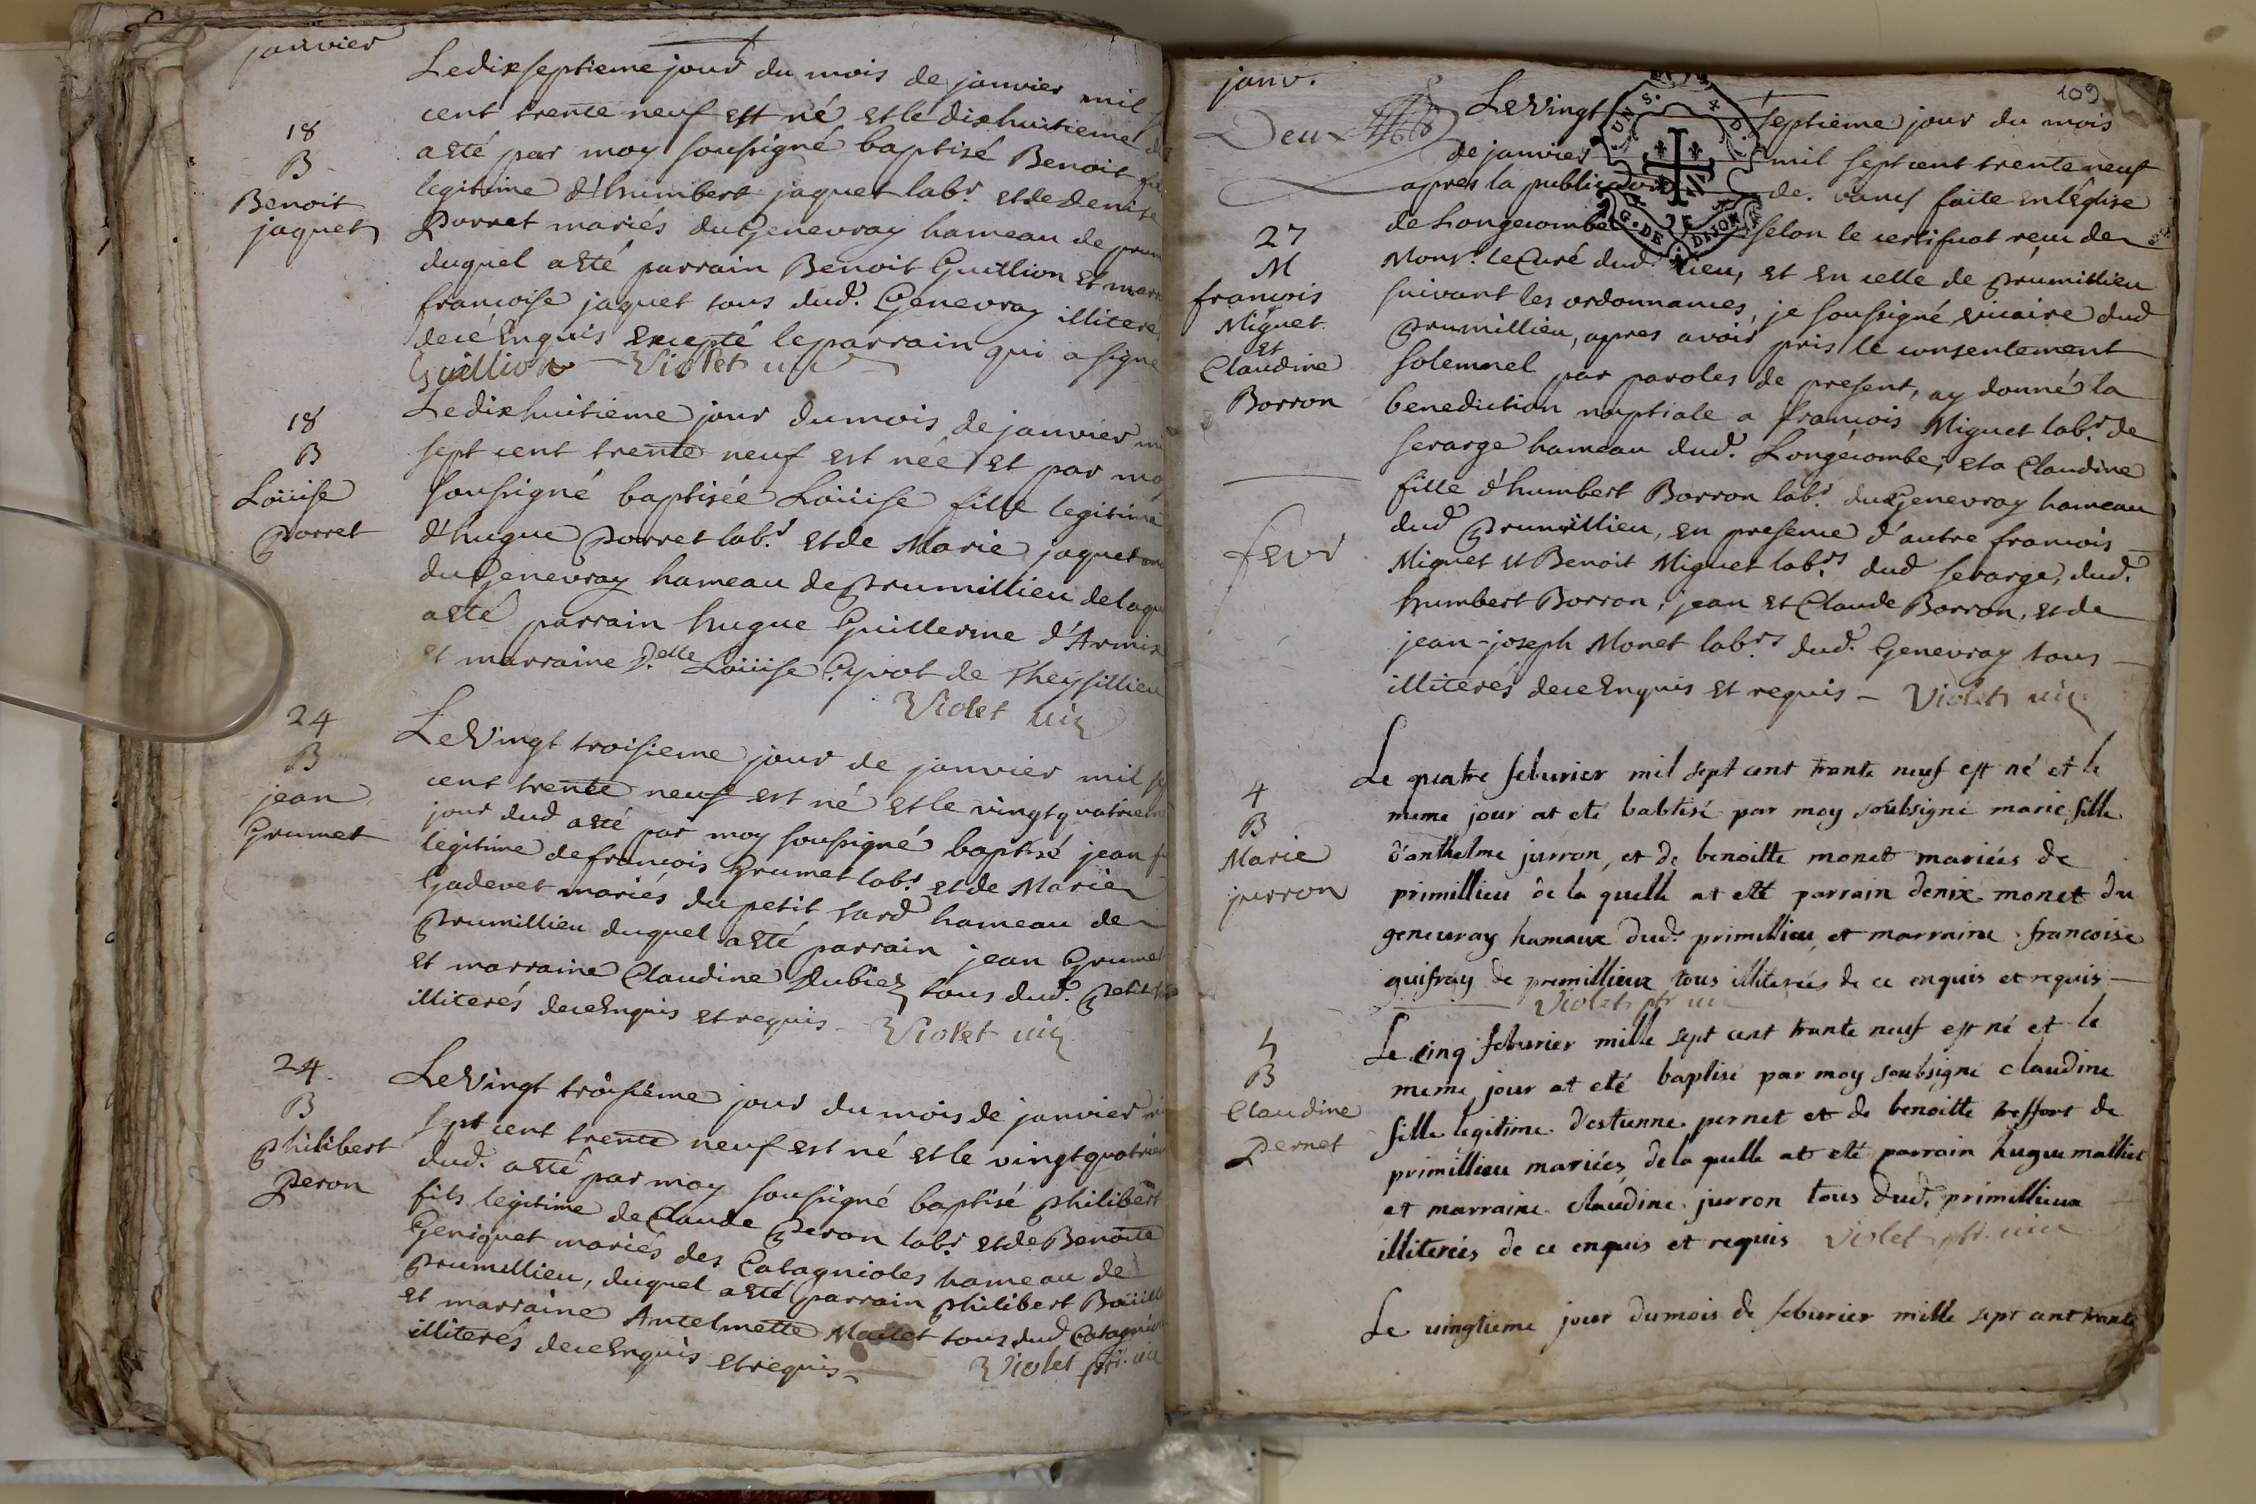 janvier
Le dixseptieme jour du mois de janvier mil
cent trente neuf est né et le dixhuitieme
18
B
Benoit
jaquet
a esté par moy soussigné baptisé Benoit
legitime d'humbert jaquet labr. et de denise
Porret mariés du Genevray hameau de prum
duquel a esté parrain Benoit Guillion et marr
francoise jaquet tous dud. Genevray illiteré
de ce Enquis Excepté le parrain qui a signé
Guillion Violet vic
18
B
Loüise
Porret
Le dixhuitieme jour du mois de janvier mi
sept cent trente neuf est née et par mo
soussigné baptisée Loüise fille legitime
d'hugue Porret labr. et de Marie jaquet
du Genevray hameau de Prumillieu de laqu
a esté parrain hugue Guillerme d'Armix
et marraine Delle Loüise Cyvot de Theysillieu
Violet vic
24
B
jean
Grumet
Le Vingt troisieme jour de janvier mil se
cent trente neuf est né et le vingt quatriem
jour dud a esté par moy soussigné baptisé jean f
legitime de francois Grumet labr. et de Marie
Gadevet mariés du petit sard hameau de
Prumillieu duquel a esté parrain jean Grumet
et marraine Claudine Dubiez tous dud. Petit
illiterés de ce Enquis et requis - Violet vic
24.
B
Philibert
Peron
Le Vingt troisieme jour du mois de janvier mi
sept cent trente neuf est né et le vingt quatriem
dud. a esté par moy soussigné baptisé Philibert
fils legitime de Claude Peron labr. et de Benoite
Geniquet mariés des Catagnioles hameau de
Prumillieu, duquel a esté parrain Philibert Boüill
et marraine Antelmette Mailet tous dud Catagnio
illiterés de ce Enquis et requis - Violet ptr. vic
janv.
109
Deux
Le Vingt septieme jour du mois
de janvier mil sept cent trente neuf
apres la publication de bancs faite en l'église
de Longecombe selon le certificat reçu de
UNS. D.
G. DE DIJON
27
M
francois
Miguet
et
Claudine
Borron
Monsr. le Curé dud. lieu, et en celle de Prumillieu
suivant les ordonnances, je soussigné vicaire dud
Prumillieu, apres avoir pris le consentement
solemnel par paroles de present, ay donné la
benediction nuptiale a françois Miguet labr. de
serarge hameau dud. Longecombe, et a Claudine
fille d'humbert Borron labr. du Genevray hameau
dud Prumillieu, en presence d'autre francois
Miguet et Benoit Miguet labrs. dud serarge, dud.
humbert Borron, jean et Claude Borron, et de
jean-joseph Monet labrs. dud. Genevray tous
illiterés de ce Enquis et requis - Violet vic
fevr
4
B
Marie
jurron
Le quatre feburier mil sept cent trante neuf est né et le
meme jour at eté babtisé par moy soubsigne marie fille
d'anthelme jurron, et de benoitte monet mariés de
primillieu de la quelle at eté parrain denix monet du
geneuray hamaux dud. primillieu et marraine francoise
guifray de premillieux tous illiterés de ce enquis et requis
Violet ptr vic
5
B
Claudine
Pernet
Le cinq feburier mille sept cent trante neuf est né et le
meme jour at eté baptisé par moy soubsigné claudine
fille legitime d'estienne pernet et de benoitte treffort de
primillieu mariés de la quelle at eté parrain hugue malliet
et marraine claudine jurron tous dud. primillieux
illiterés de ce enquis et requis Violet ptr. vic
Le uingtieme jour du mois de feburier mille sept cent trante